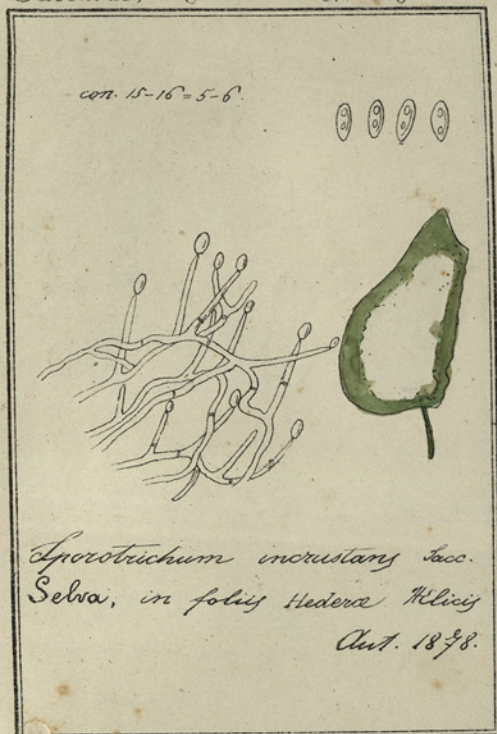 con. 15-16 = 5-6.
Sporotrichum incrustans Sacc.
Selva, in foliis Hederæ Helicis
Aut. 1878.